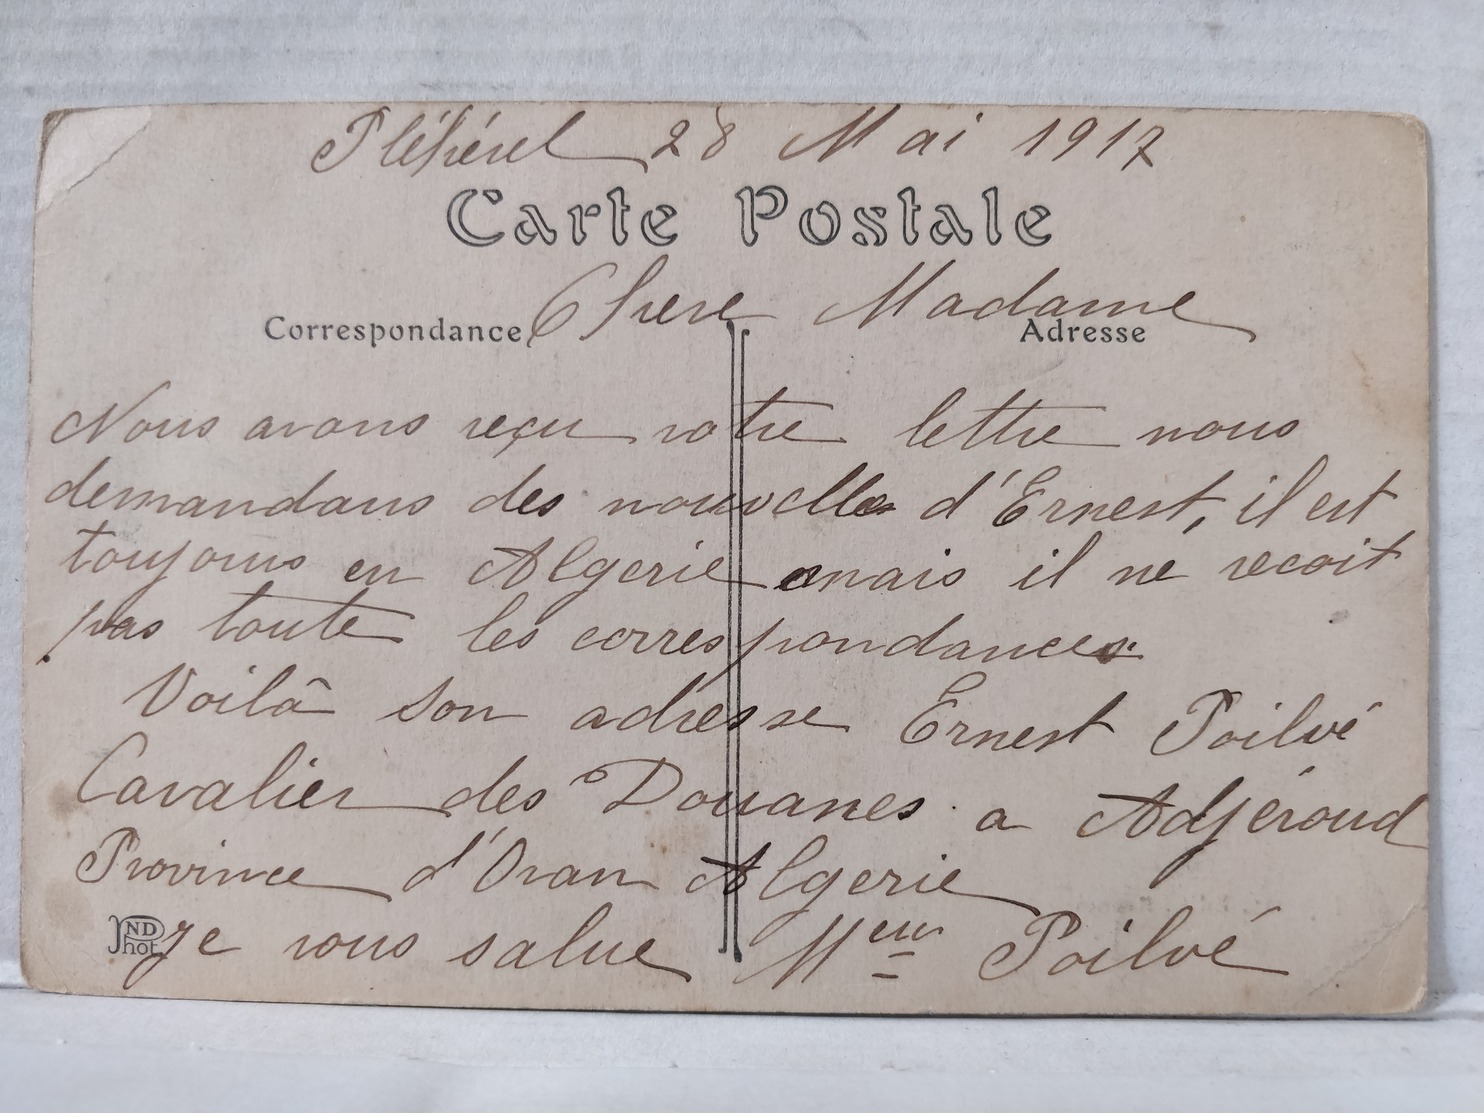 Pléhérel 28 Mai 1917
Carte Postale
Chere Madame
Correspondance
Adresse
Nous avons reçu votre lettre nous
demandans des nouvelles d'Ernest, il est
toujours en Algerie mais il ne recoit
pas toute les correspondances.
Voilâ son adresse Ernest Poilvé
Cavalier des Douanes a Adjéroud
Province d'Oran Algerie
ND
Phot
Je vous salue Meur Poilvé